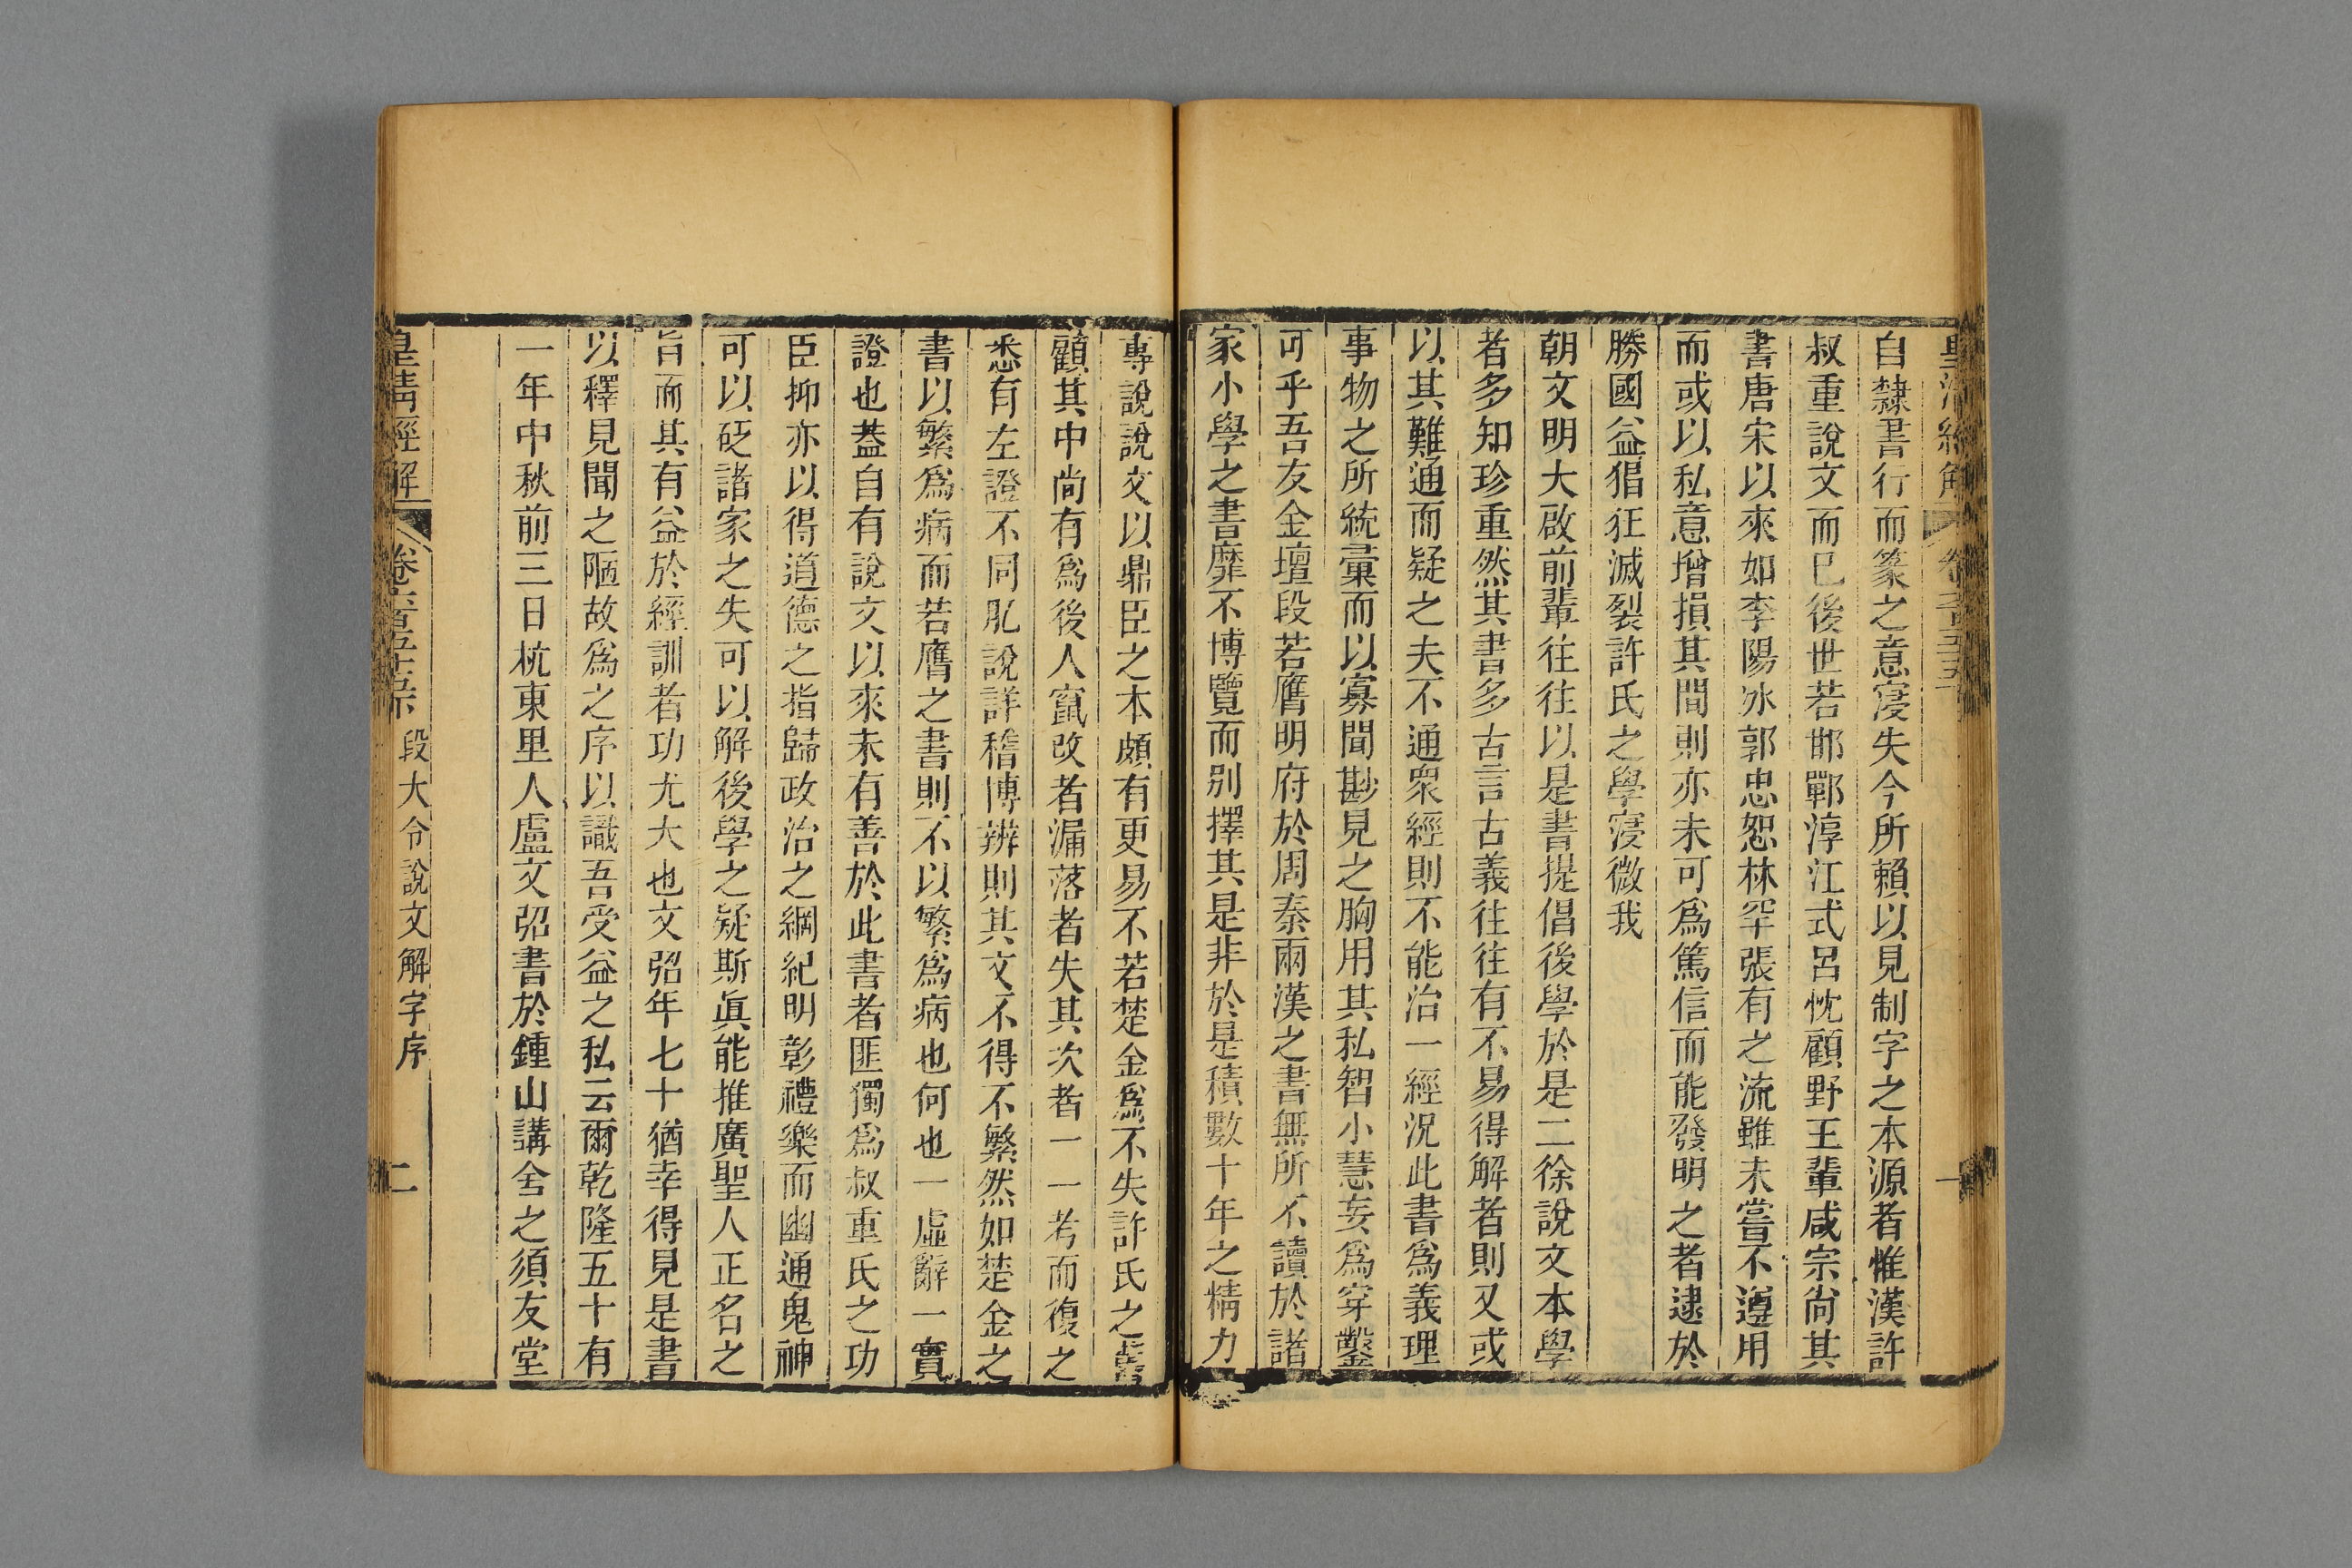 自隸書行而篆之意寖失今所賴以見制字之本源者惟漢許
叔重說文而已後世若邯鄲淳江式呂忱顧野王輩咸宗尚其
書唐宋以來如李陽冰郭忠恕林罕張有之流雖未嘗不遵用
而或以私意增損其間則亦未可爲篤信而能發明之者逮於
勝國益猖狂滅裂許氏之學寖微我
朝文明大啟前輩往往以是書提倡後學於是二徐說文本學
者多知珍重然其書多古言古義往往有不易得解者則又或
以其難通而疑之夫不通衆經則不能治一經況此書爲義理
事物之所統彙而以寡聞尠見之胸用其私智小慧妄爲穿鑿
可乎吾友金壇段若膺明府於周秦兩漢之書無所不讀於諸
家小學之書靡不博覽而別擇其是非於是積數十年之精力
專說說文以鼎臣之本頗有更易不若楚金爲不失許氏之舊
顧其中尚有爲後人竄改者漏落者失其次者一一考而復之
悉有左證不同肊說詳稽博辨則其文不得不繁然如楚金之
書以繁爲病而若膺之書則不以繁爲病也何也一虛辭一實
證也葢自有說文以來未有善於此書者匪獨爲叔重氏之功
臣抑亦以得道德之指歸政治之綱紀明彰禮樂而幽通鬼神
可以砭諸家之失可以解後學之疑斯眞能推廣聖人正名之
旨而其有益於經訓者功尤大也文弨年七十猶幸得見是書
以釋見聞之陋故爲之序以識吾受益之私云爾乾隆五十有
一年中秋前三日杭東里人盧文弨書於鍾山講舍之須友堂
皇淸經解 卷六百五十五 段大令說文解字序 二